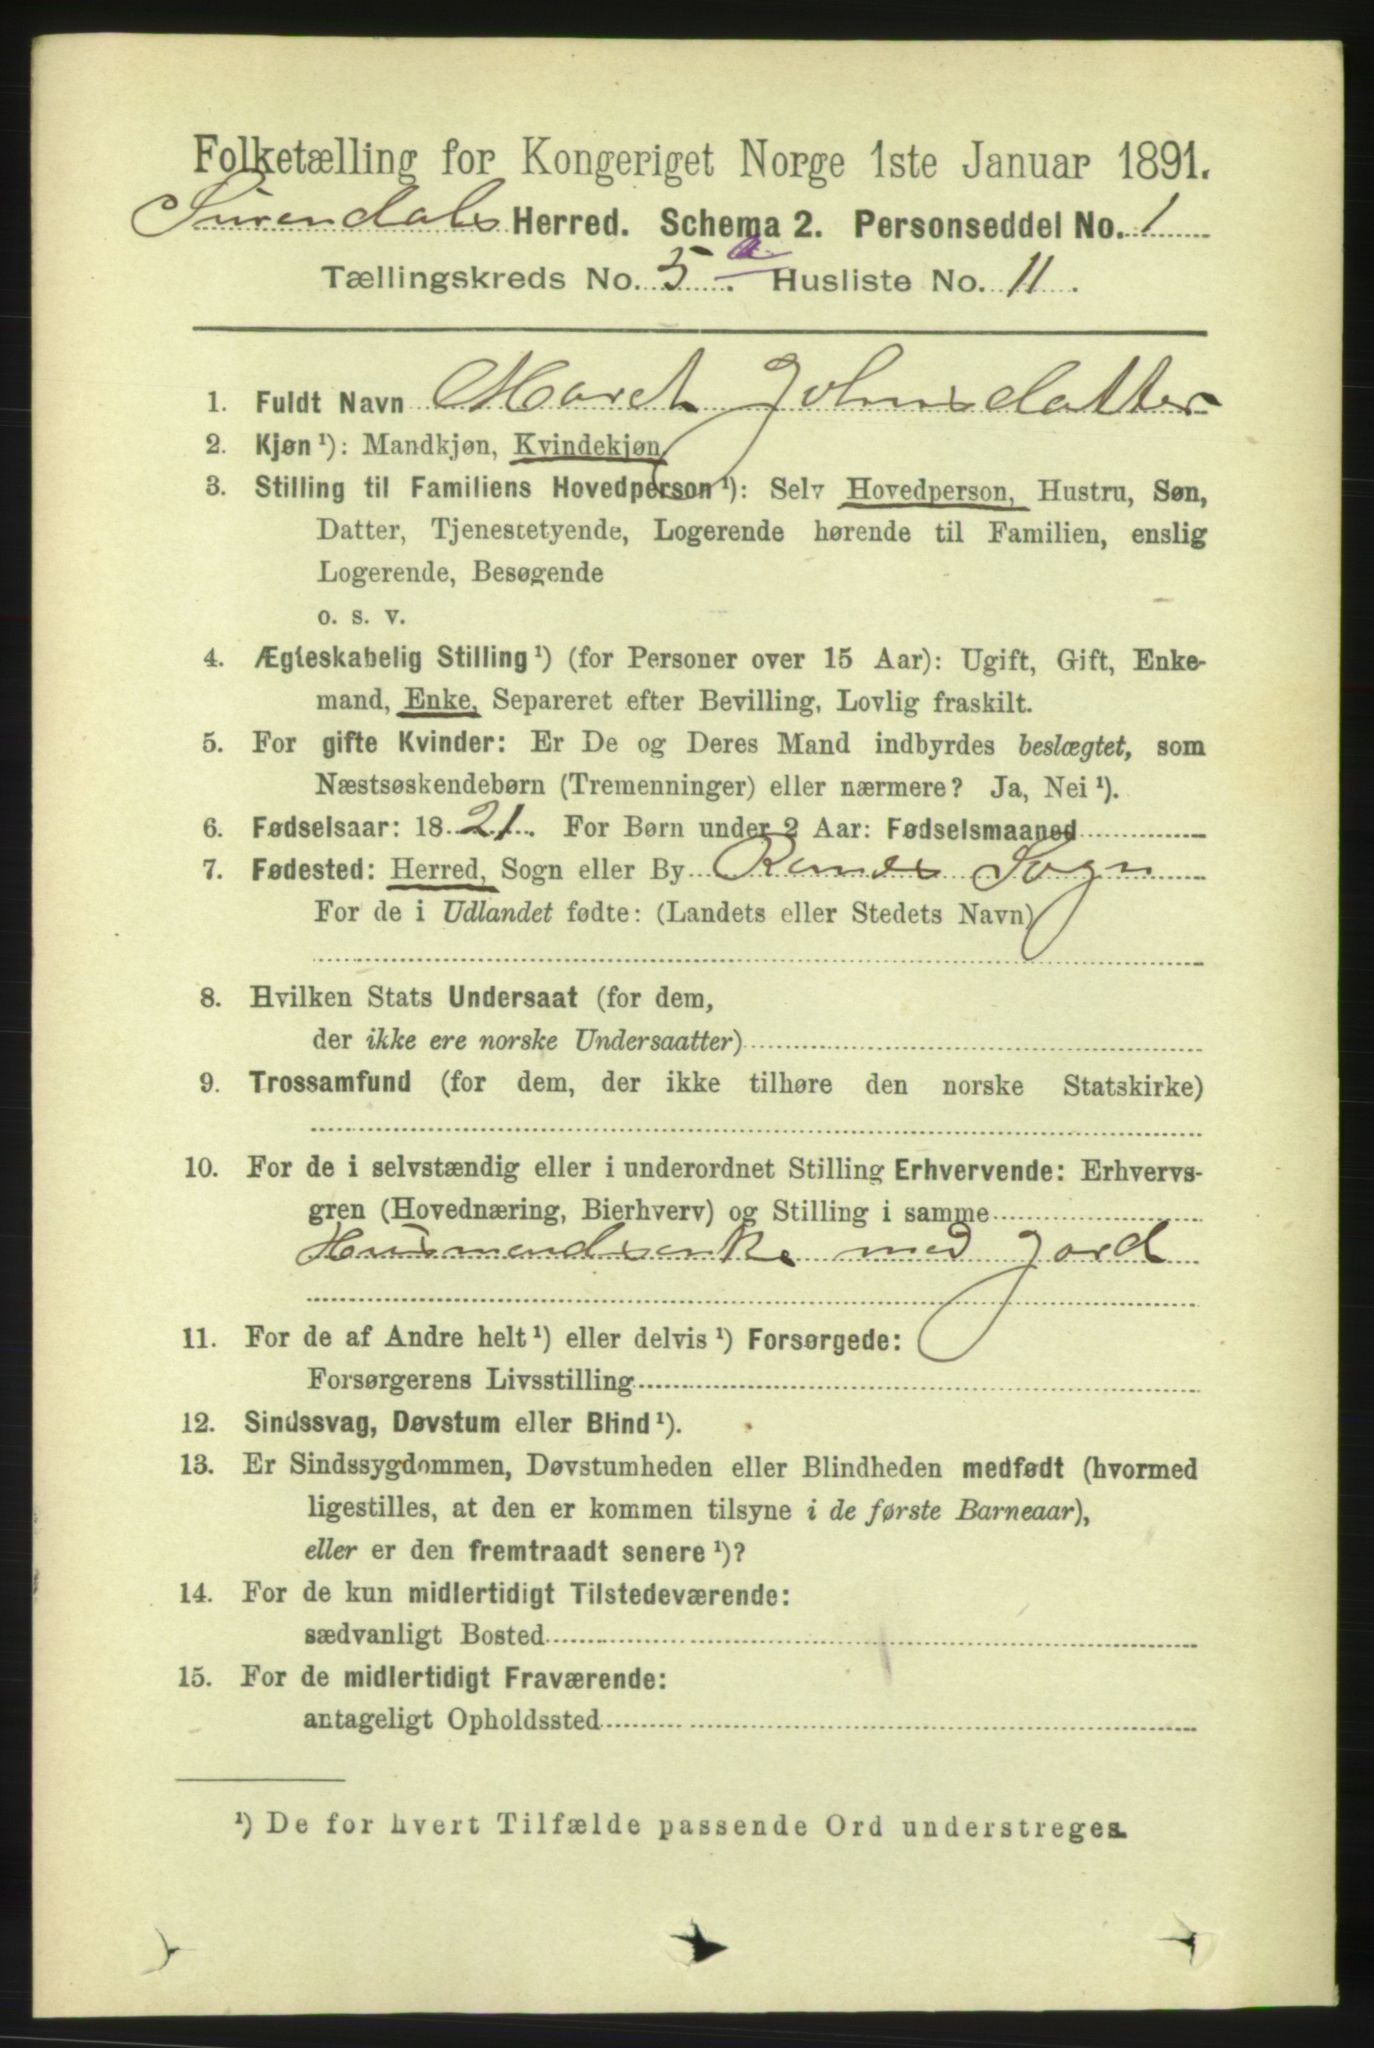 Folketælling for Kongeriget Norge 1ste Januar 1891.
Surendals Herred. Schema 2. Personseddel No. 1
Tællingskreds No. 5 a. Husliste No. 11.
1. Fuldt Navn Maret Johnsdatter
2. Kjøn¹): Mandkjøn, Kvindekjøn
3. Stilling til Familiens Hovedperson¹): Selv Hovedperson, Hustru, Søn,
Datter, Tjenestetyende, Logerende hørende til Familien, enslig
Logerende, Besøgende
o. s. v.
4. Ægteskabelig Stilling¹) (for Personer over 15 Aar): Ugift, Gift, Enke-
mand, Enke, Separeret efter Bevilling, Lovlig fraskilt.
5. For gifte Kvinder: Er De og Deres Mand indbyrdes beslægtet, som
Næstsøskendebørn (Tremenninger) eller nærmere? Ja, Nei¹).
6. Fødselsaar: 1821. For Børn under 2 Aar: Fødselsmaaned
7. Fødested: Herred, Sogn eller By Ranes Sogn
For de i Udlandet fødte: (Landets eller Stedets Navn)
8. Hvilken Stats Undersaat (for dem,
der ikke ere norske Undersaatter)
9. Trossamfund (for dem, der ikke tilhøre den norske Statskirke)
10. For de i selvstændig eller i underordnet Stilling Erhvervende: Erhvervs-
gren (Hovednæring, Bierhverv) og Stilling i samme
Husmandsenke med Jord
11. For de af Andre helt¹) eller delvis¹) Forsørgede:
Forsørgerens Livsstilling
12. Sindssvag, Døvstum eller Blind¹).
13. Er Sindssygdommen, Døvstumheden eller Blindheden medfødt (hvormed
ligestilles, at den er kommen tilsyne i de første Barneaar),
eller er den fremtraadt senere¹)?
14. For de kun midlertidigt Tilstedeværende:
sædvanligt Bosted
15. For de midlertidigt Fraværende:
antageligt Opholdssted
¹) De for hvert Tilfælde passende Ord understreges.